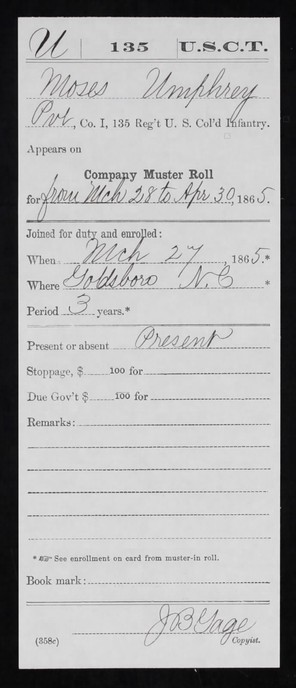 U 135 U.S.C.T.
Moses Umphrey
Pvt, Co. I, 135 Reg't U. S. Col'd Infantry.
Appears on
Company Muster Roll
for from Mch 28 to Apr 30, 1865.
Joined for duty and enrolled:
When Mch 27, 1865.*
Where Goldsboro N.C *
Period 3 years.*
Present or absent Present
Stoppage, $ 100 for
Due Gov't $ 100 for
Remarks:
* See enrollment on card from muster-in roll.
Book mark:
J B Gage
(358c) Copyist.